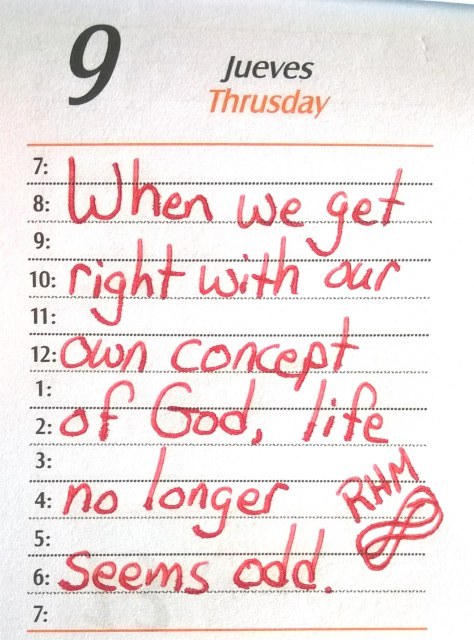 9
Jueves
Thrusday
7:
8: When we get
9:
10: right with our
11:
12: own concept
1:
2: of God, life
3:
4: no longer
RHM
5:
6: seems odd.
7: